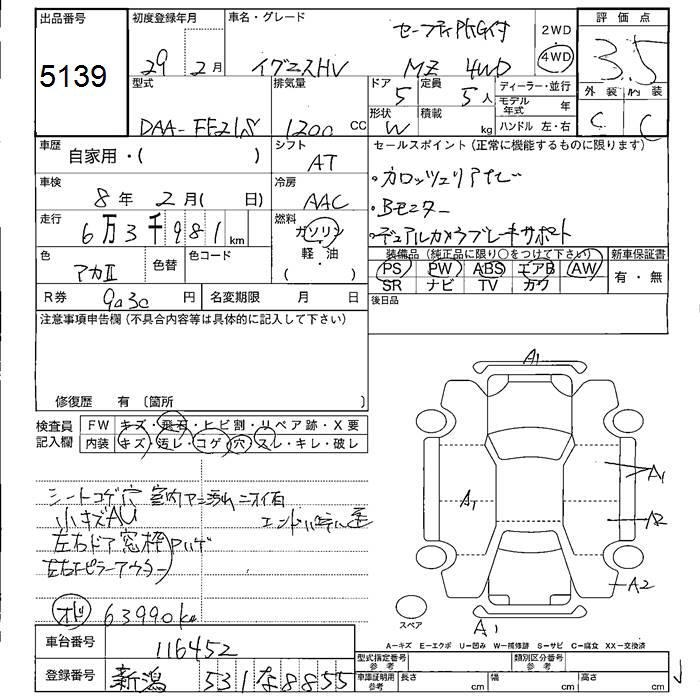 出品番号
5139
初度登録年月
29 年 2月
車名・グレード
セーフティPKG付
イグニスHV MZ 4WD
2WD
4WD
評価点
3.5
外装 内装
C C
型式
DAA-FF21S
排気量
1200 CC
ドア
5
定員
5人
形状
W
積載
kg
ディーラー・並行
モデル年式 年
ハンドル 左・右
車歴
自家用・( )
シフト
AT
車検
8年 2月( 日)
冷房
AAC
走行
6万3千981km
燃料
ガソリン
軽・油
( )
色
アカII
色替
色コード
R券
9030円
名変期限 月 日
セールスポイント(正常に機能するものに限ります)
・カロッツェリアナビ
・Bモニター
・デュアルカメラブレーキサポート
装備品(純正品に限り○をつけて下さい)
PS PW ABS エアB AW
SR ナビ TV カワ
新車保証書
有・無
後日品
注意事項申告欄(不具合内容等は具体的に記入して下さい)
修復歴 有〔箇所 〕
検査員記入欄
FW キズ・飛石・ヒビ割・リペア跡・X要
内装 キズ・汚レ・コゲ・穴・スレ・キレ・破レ
シートコゲ穴 室内 汚れ ニオイ有
小キズAU
左右ドア窓枠 ハゲ
左右ピラーアウター
63990k
車台番号
116452
登録番号
新潟 531 な 8855
A1
A1
A1
A2
A2
A1
スペア
A-キズ E-エクボ U-凹み W-補修跡 S-サビ C-腐食 XX-交換済
型式指定番号 参考
類別区分番号 参考
車庫証明用 参考
長さ cm
幅 cm
高さ cm